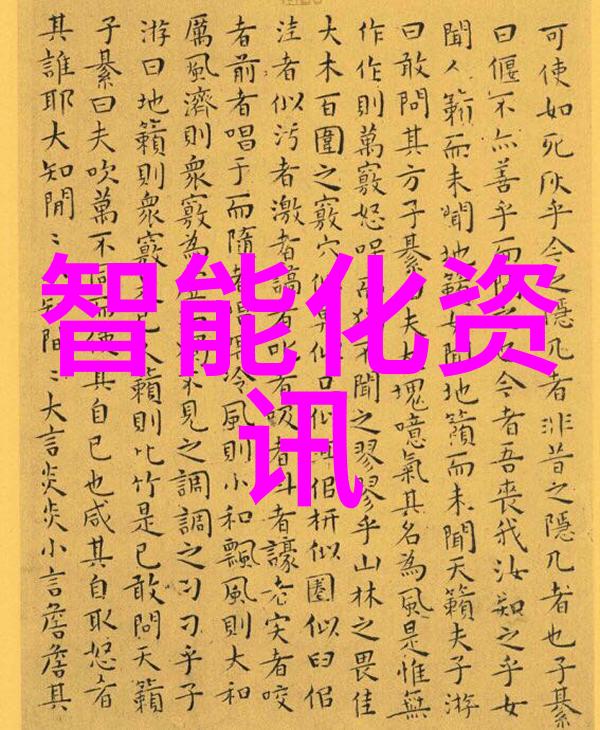 可使如死灰乎今之隱几者非昔之隱几者也子綦
曰偃不亦善乎而問之也今者吾喪我汝知之乎女
聞人籟而未聞地籟女聞地籟而未聞天籟夫子游
曰敢問其方子綦曰夫大塊噫氣其名為風是惟無
作作則萬竅怒呺而獨不聞之翏翏乎山林之畏佳
大木百圍之竅穴似鼻似口佀耳佀枅似圈似臼佀
洼者似污者激者謞者叱者吸者叫者譹者宎者咬
者前者唱于而隨者唱喁泠風則小和飄風則大和
厲風濟則衆竅為虛而獨不見之調調之刁刁乎子
游曰地籟則衆竅是已人籟則比竹是已敢問天籟
子綦曰夫吹萬不同而使其自已也咸其自取怒者
其誰耶大知閒〻小知閒〻大言炎炎小言詹詹其
智能化资
讯